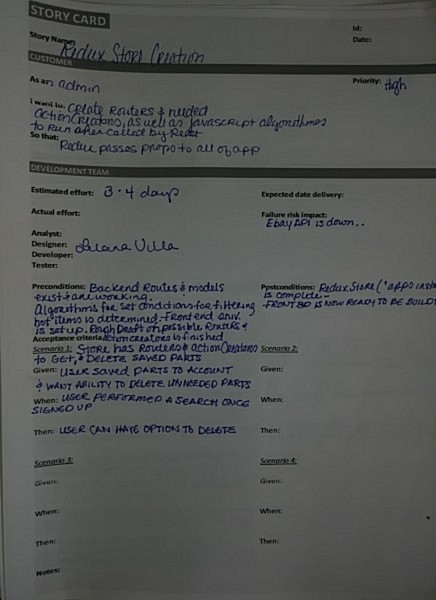 STORY CARD
Id:
Story Name: Redux Store Creation
Date:
CUSTOMER
As an admin
Priority: High
I want to: Create Routers & needed
actionCreators, as well as javascript algorithmes
to Run after called by React
So that:
Redux passes props to all of app
DEVELOPMENT TEAM
Estimated effort: 3-4 days
Expected date delivery:
Actual effort:
Failure risk impact:
Ebay API is down..
Analyst:
Designer: Villa
Developer:
Tester:
Preconditions: Backend Routes & models
exist & are working.
Algorithms for set conditions for filtering
hot items is determined. Frontend env.
is set up. Rough Draft of possible Routes &
actioncreators is finished
Pstconditions: Redux Store ("apps
is complete -
FRONT END IS NOW READY TO BE BUILD
Acceptance criteria:
Scenario 1: Store has Routers & actionCreators
to GET, & DELETE SAVED PARTS
Given: USER SAVED PARTS TO ACCOUNT
& WANT ABILITY TO DELETE UNNEEDED PARTS
When: USER PERFORMED A SEARCH ONCE
SIGNED UP
Then: USER CAN HAVE OPTION TO DELETE
Scenario 2:
Given:
When:
Then:
Scenario 3:
Given:
When:
Then:
Scenario 4:
Given:
When:
Then:
Notes: